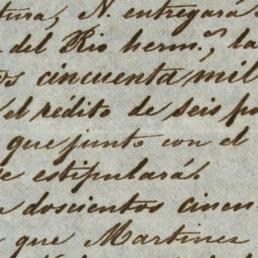 tura, N. entregará
del Rio herm.os, la
os cincuenta mil
el rédito de seis po
que junto con el
e estipulará.
doscientos cincu
que Martinez